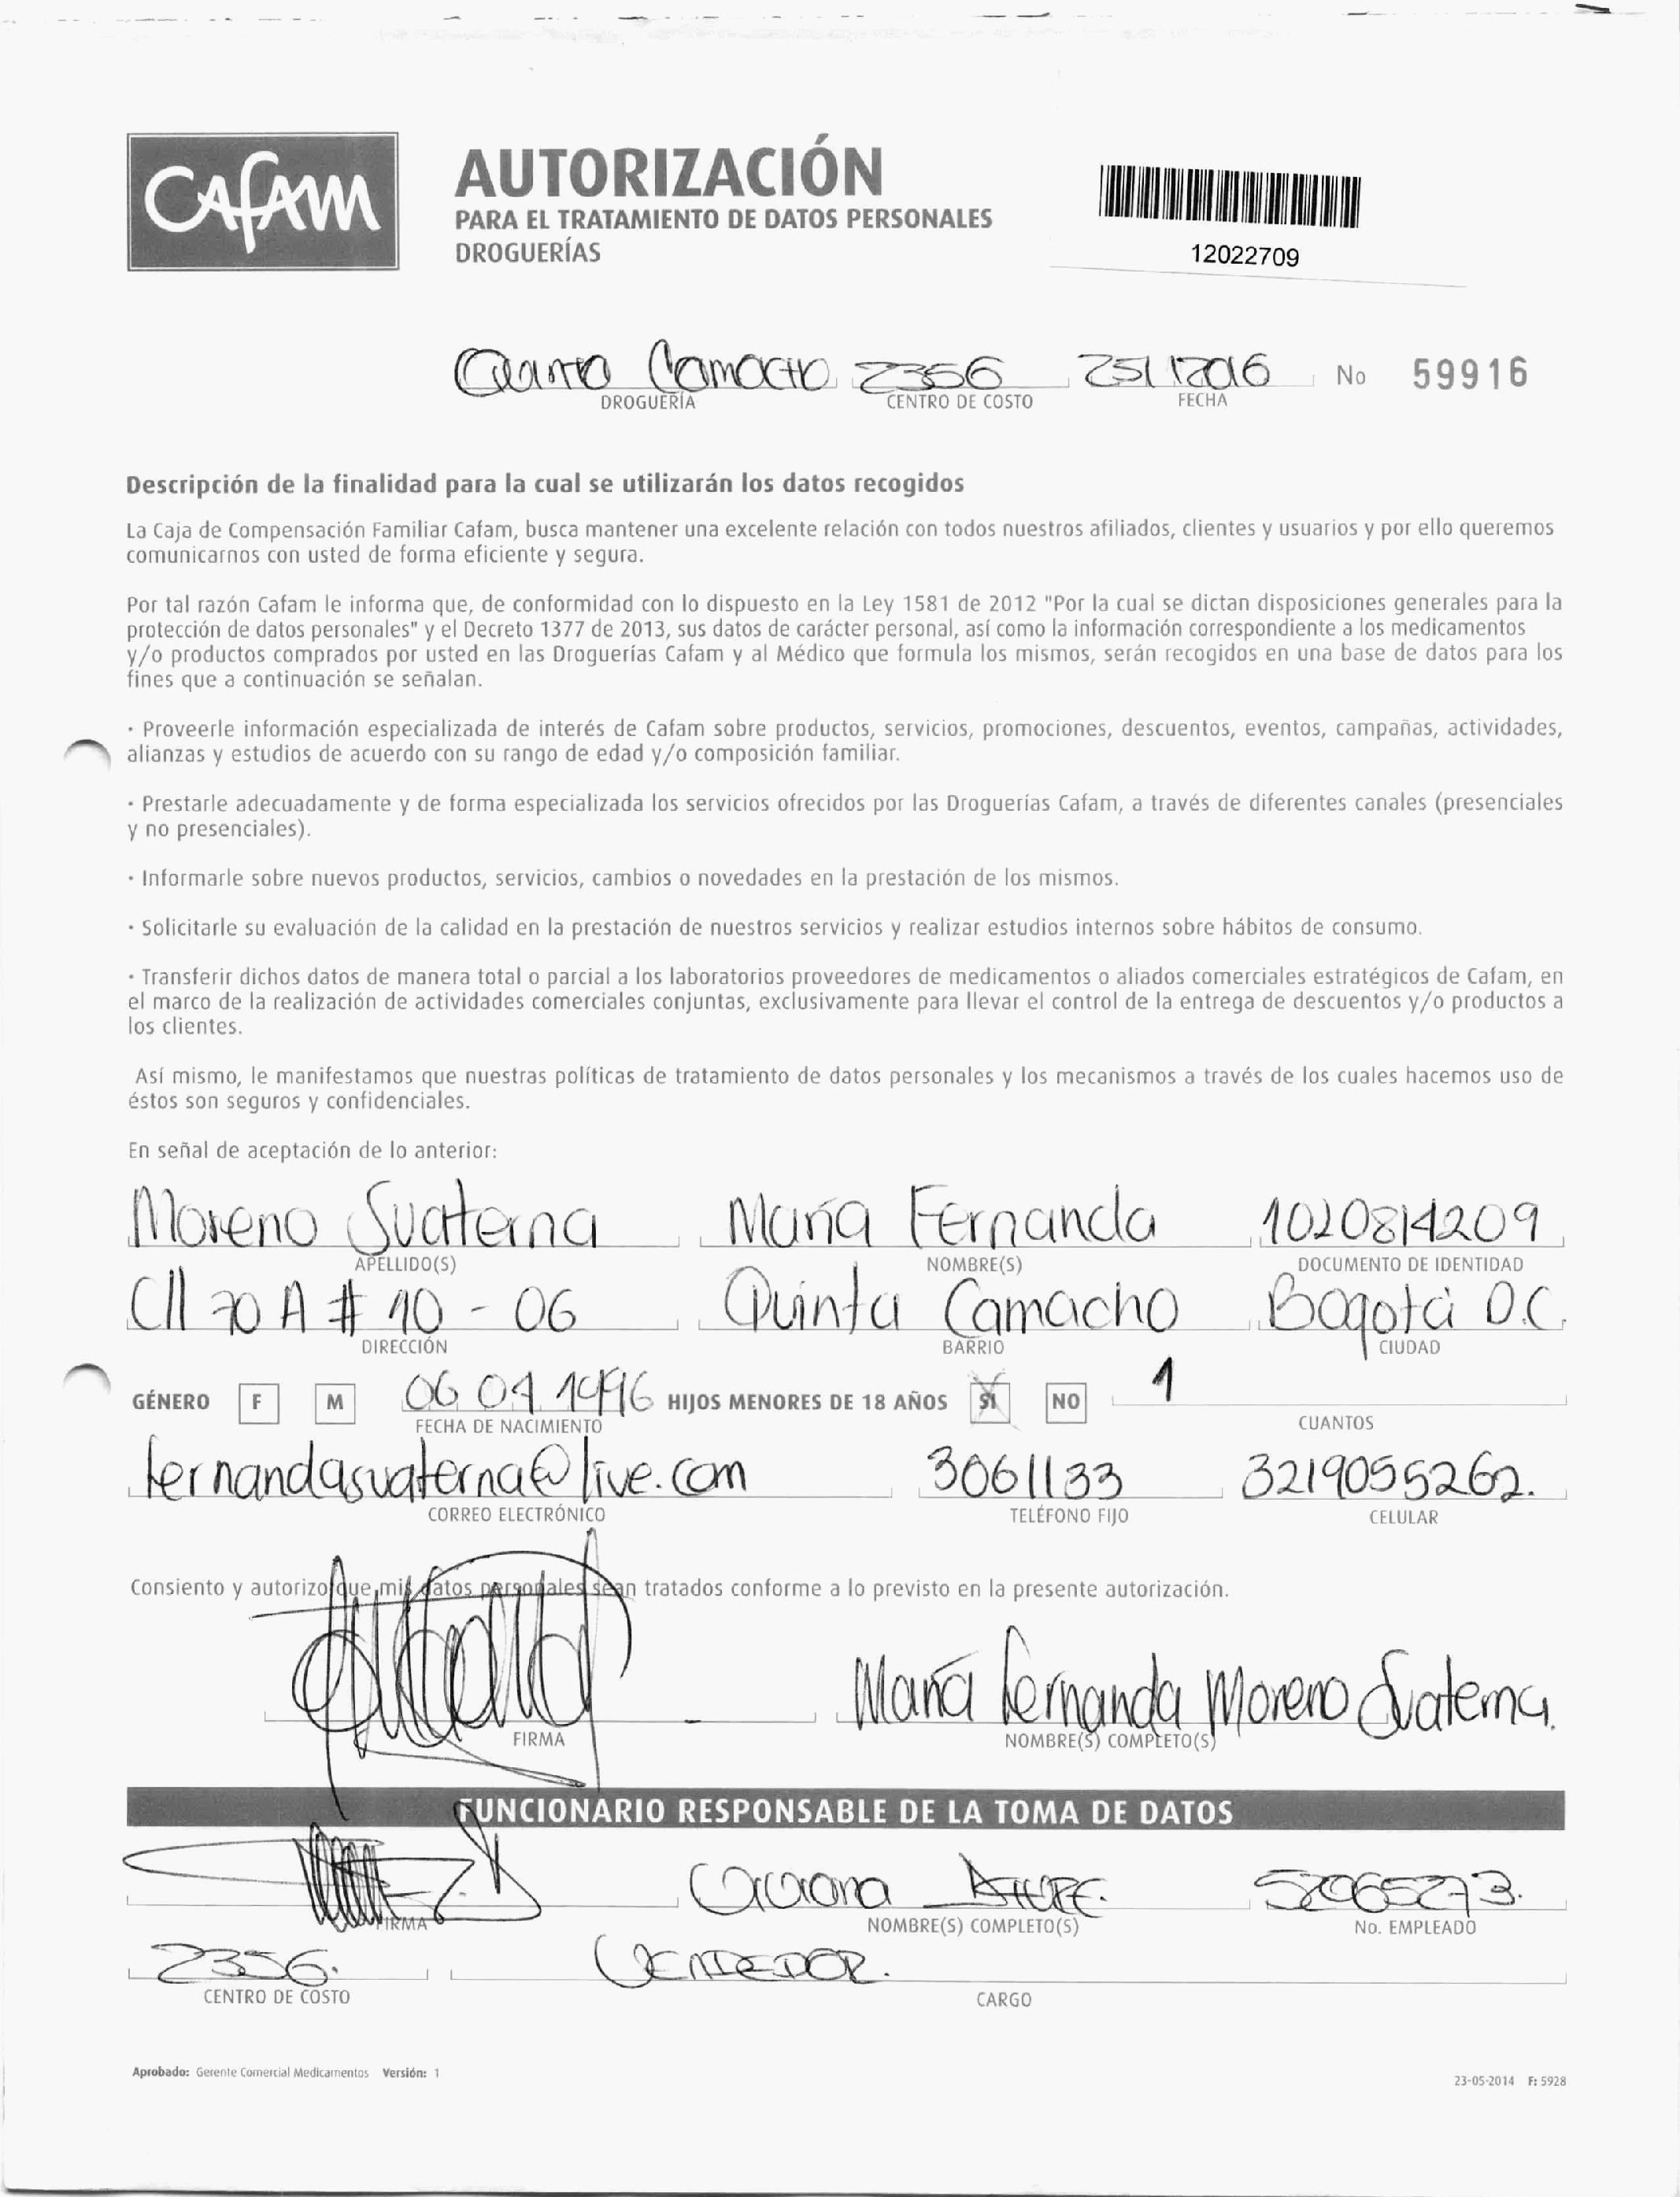 CAFAM
AUTORIZACIÓN
PARA EL TRATAMIENTO DE DATOS PERSONALES
DROGUERÍAS
12022709
Quinta Camacho 2356 25/1/2016 No 59916
DROGUERÍA CENTRO DE COSTO FECHA
Descripción de la finalidad para la cual se utilizarán los datos recogidos
La Caja de Compensación Familiar Cafam, busca mantener una excelente relación con todos nuestros afiliados, clientes y usuarios y por ello queremos
comunicarnos con usted de forma eficiente y segura.
Por tal razón Cafam le informa que, de conformidad con lo dispuesto en la Ley 1581 de 2012 "Por la cual se dictan disposiciones generales para la
protección de datos personales" y el Decreto 1377 de 2013, sus datos de carácter personal, así como la información correspondiente a los medicamentos
y/o productos comprados por usted en las Droguerías Cafam y al Médico que formula los mismos, serán recogidos en una base de datos para los
fines que a continuación se señalan.
· Proveerle información especializada de interés de Cafam sobre productos, servicios, promociones, descuentos, eventos, campañas, actividades,
alianzas y estudios de acuerdo con su rango de edad y/o composición familiar.
· Prestarle adecuadamente y de forma especializada los servicios ofrecidos por las Droguerías Cafam, a través de diferentes canales (presenciales
y no presenciales).
· Informarle sobre nuevos productos, servicios, cambios o novedades en la prestación de los mismos.
· Solicitarle su evaluación de la calidad en la prestación de nuestros servicios y realizar estudios internos sobre hábitos de consumo.
· Transferir dichos datos de manera total o parcial a los laboratorios proveedores de medicamentos o aliados comerciales estratégicos de Cafam, en
el marco de la realización de actividades comerciales conjuntas, exclusivamente para llevar el control de la entrega de descuentos y/o productos a
los clientes.
Así mismo, le manifestamos que nuestras políticas de tratamiento de datos personales y los mecanismos a través de los cuales hacemos uso de
éstos son seguros y confidenciales.
En señal de aceptación de lo anterior:
Moreno Suaterna María Fernanda 1020814209
APELLIDO(S) NOMBRE(S) DOCUMENTO DE IDENTIDAD
Cll 70 A # 10 - 06 Quinta Camacho Bogotá D.C.
DIRECCIÓN BARRIO CIUDAD
GÉNERO F M 06 04 1996 HIJOS MENORES DE 18 AÑOS SI NO 1
FECHA DE NACIMIENTO CUANTOS
fernandasuaterna@live.com 3061133 3219055262.
CORREO ELECTRÓNICO TELÉFONO FIJO CELULAR
Consiento y autorizo que mis datos personales sean tratados conforme a lo previsto en la presente autorización.
María Fernanda Moreno Suaterna.
FIRMA NOMBRE(S) COMPLETO(S)
FUNCIONARIO RESPONSABLE DE LA TOMA DE DATOS
52065273.
FIRMA NOMBRE(S) COMPLETO(S) No. EMPLEADO
2356. VENDEDOR.
CENTRO DE COSTO CARGO
Aprobado: Gerente Comercial Medicamentos Versión: 1
23-05-2014 F: 5928